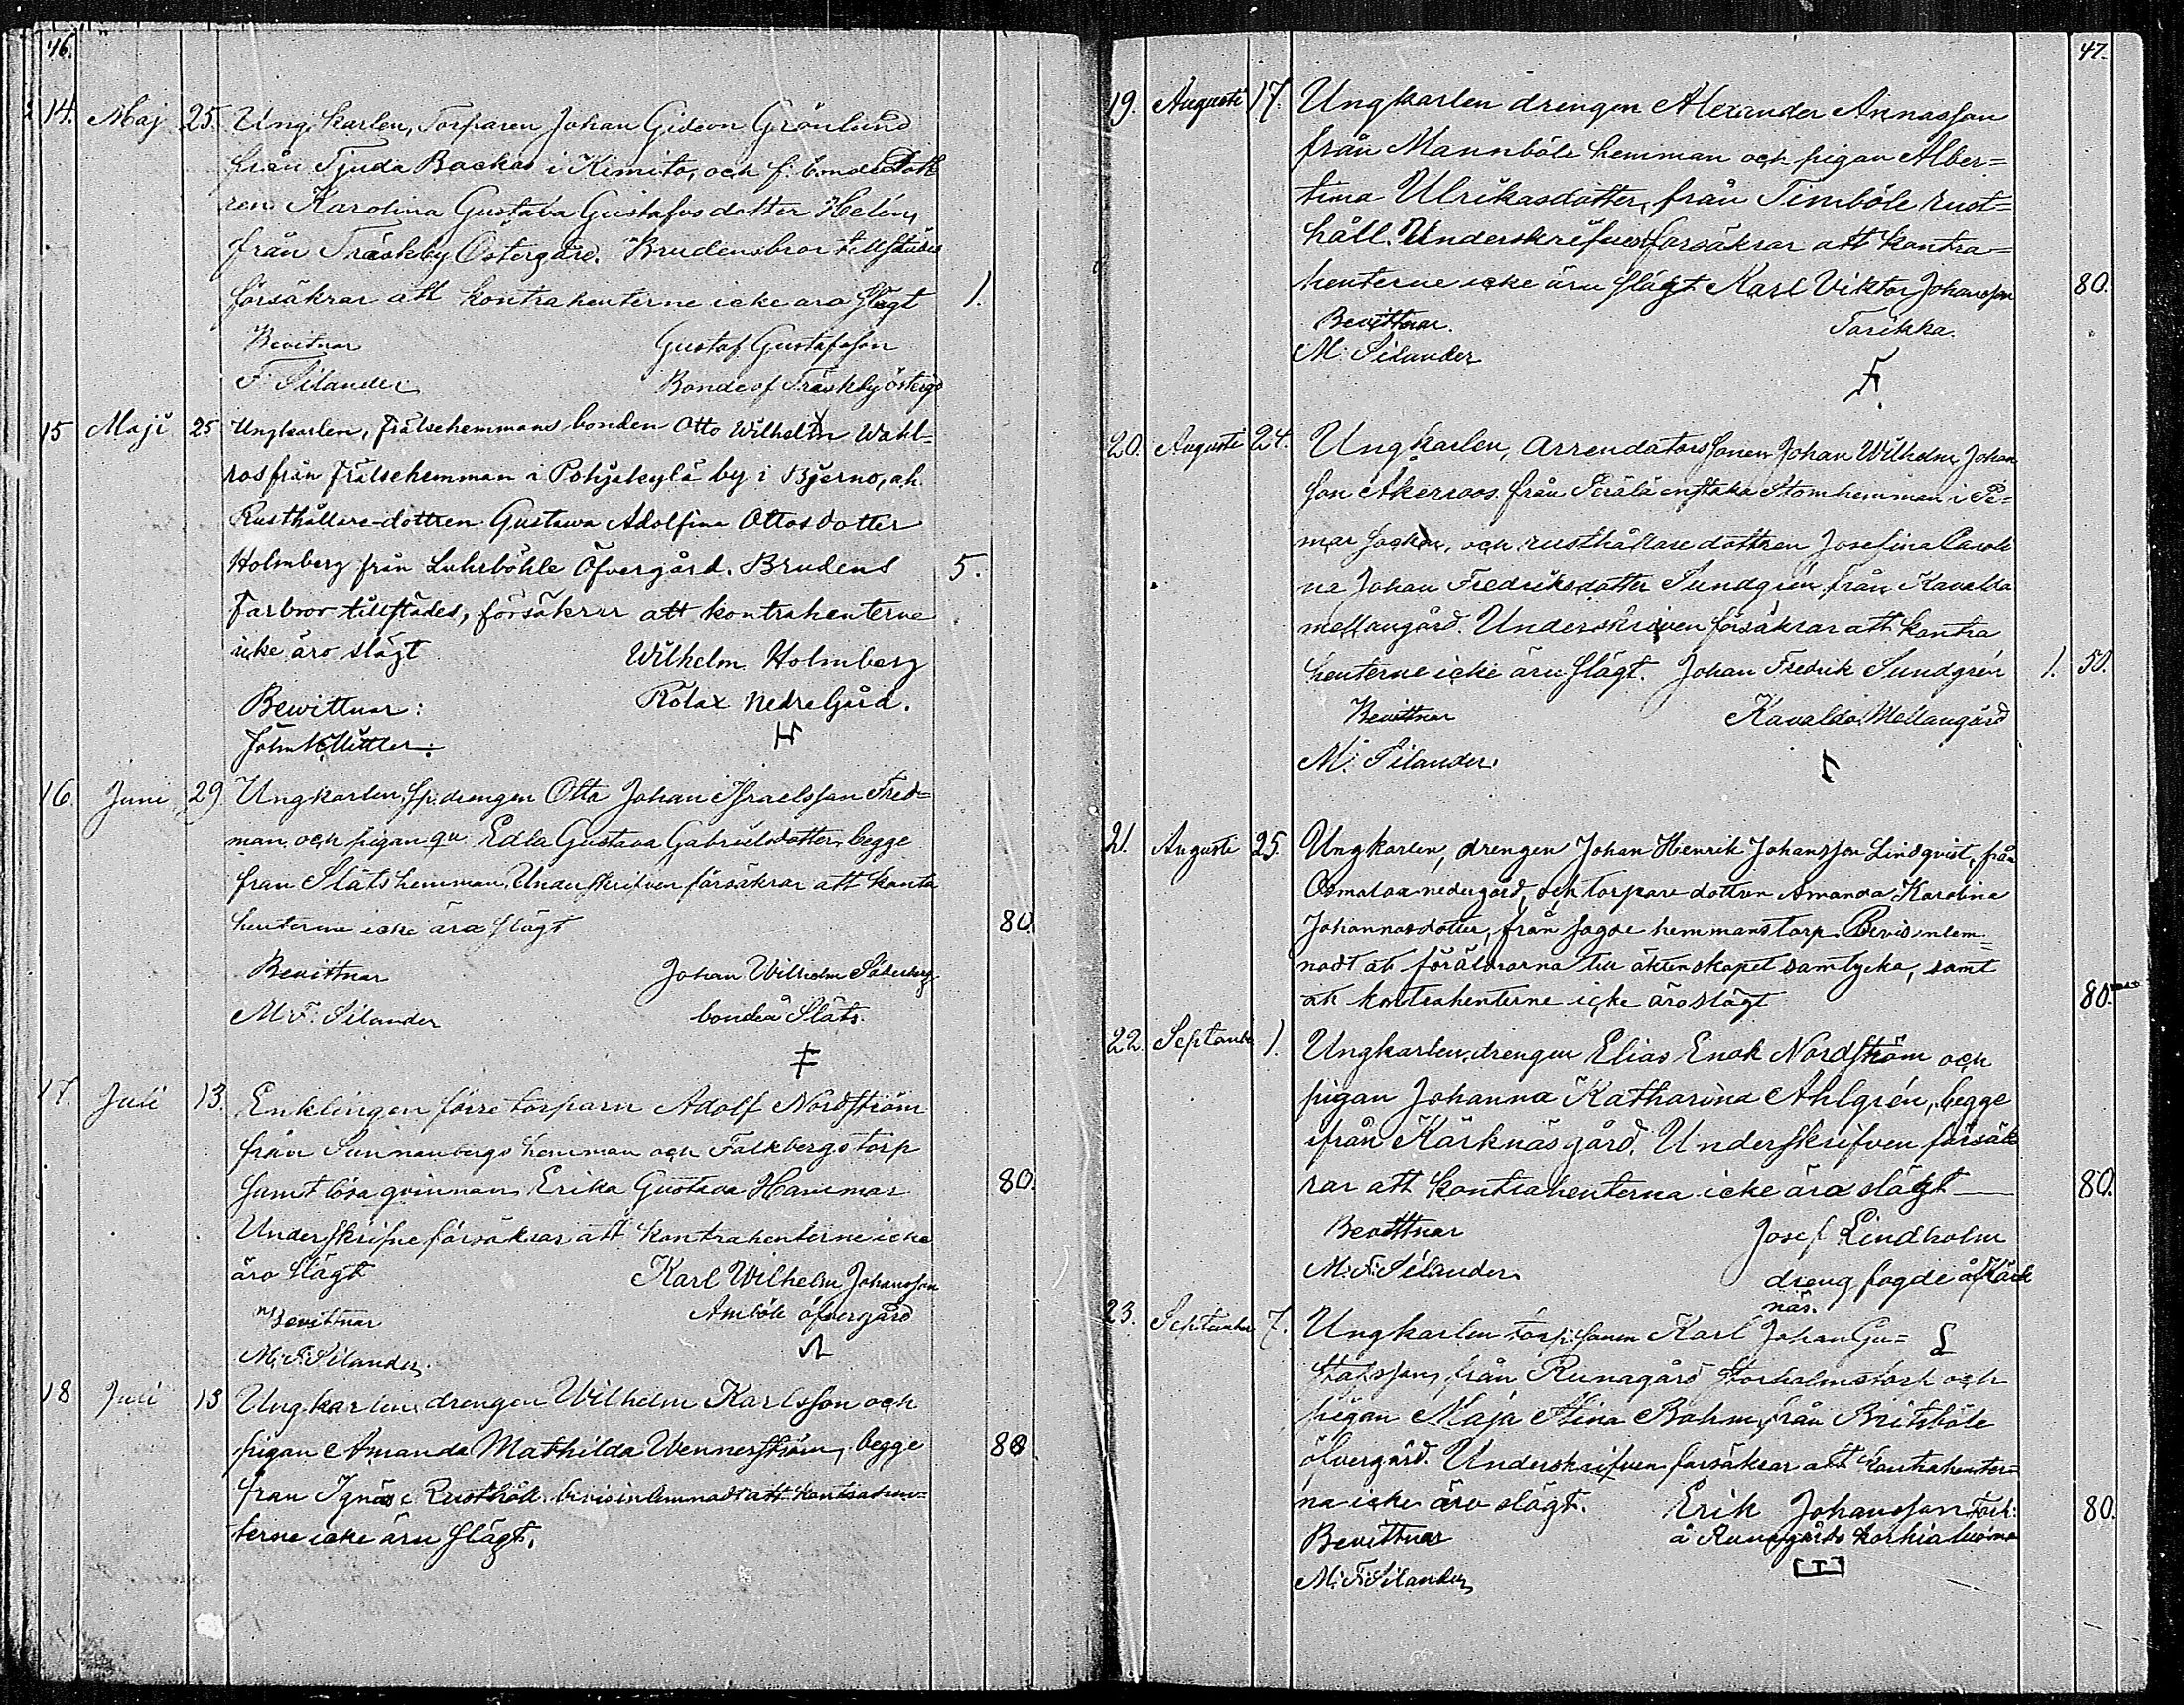 46.
14. Maj 25. Ungkarlen, Torparen Johan Gideon Grönlund
från Tjuda Backas i Kimito, och f. bonde Dott
ren Karolina Gustava Gustafvsdotter Helén,
från Träskby Östergård. Brudens bror tillstädes
försäkrar att kontrahenterne icke äro slägt 1.
Bevitnar Gustaf Gustafsson
F. Silander Bonde af Träskby Östergd
15 Maji 25 Ungkarlen, frälsehemmans bonden Otto Wilhelm Wahl-
ros från frälsehemman i Pohjakylä by i Bjerno, ah
Rusthållare-dottren Gustawa Adolfina Ottosdotter
Holmberg från Luhrböhle Öfvergård. Brudens 5.
Farbror tillstädes, försäkrar att kontrahenterne
icke äro slägt Wilhelm Holmberg
Bewittnar: Rölax NedreGård.
H
16. Juni 29 Ungkarlen, Sp. drengen Otto Johan Israelsson Fred=
man och pigan qv. Edla Gustava Gabrielsdotter, begge
från Släts hemman, Underskrifven försäkrar att kontra
henterne icke äro slägt 80.
Bevittnar Johan Wilhelm Söderberg
M. F. Silander bonde å Släts.
17. Juli 13. Enklingen förre torparn Adolf Nordström
från Sunnanbergs hemman och Falkbergs torp
samt lösa qvinnan Erika Gustava Hammar 80.
Underskrifne försäkrar att kontrahenterne icke
äro slägt Karl Wilhelm Johansson
Bevittnar Amböle öfvergård
M. F. Silander.
18 Juli 13 Ungkarlen drengen Wilhelm Karlsson och
pigan Amanda Mathilda Wennerström, begge 80
från Ignäs Rusthåll. bevis inlemnadt att kontrahen=
terne icke äro slägt.
47.
19. Augusti 17. Ungkarlen drengen Alexander Annasson
från Mannböle hemman och pigan Alber=
tina Ulrikasdotter, från Timböle rust=
håll. Underskrifven försäkrar att kontra=
henterne icke äro slägt. Karl Viktor Johansson 80.
Bevittnar. Tarikka.
M. Silander
20. Augusti 24. Ungkarlen, Arrendators sonen Johan Wilhelm Johan
son Åkerroos från Perälä enstaka Stomhemman i Pe=
mar socken, och rusthållare dottren Josefina Caroli
na Johan Fredriksdotter Sundgrén från Kavalda
mellangård. Underskriven försäkrar att kontra
henterne icke äro slägt. Johan Fredrik Sundgrén 1. 50.
Bevittnar Kavalda Mellangård
M. Silander.
21. Augusti 25. Ungkarlen, drengen Johan Henrik Johansson Lindqvist, från
Osmalax nedergård, och torpare dottren Amanda Karolina
Johannesdotter, från Sagde hemmanstorp. Bevis inlem=
nadt att föräldrarna till äktenskapet samtycka, samt
att kontrahenterne icke äro slägt 80.
22. September 1. Ungkarlen, drengen Elias Enok Nordström och
pigan Johanna Katharina Ahlgrén, begge
ifrån Kärknäs gård. Underskrifven försäk
rar att kontrahenterna icke äro slägt 80.
Bevittnar Josef Lindholm
M. F. Silander dreng fogde å Kärk
näs.
23. September 7. Ungkarlen torp. sonen Karl Johan Gu=
stafsson, från Runagård Storholmstorp och
pigan Maja Stina Bohm, från Britsböle
öfvergård. Underskrifven försäkrar att kontrahenter=
na icke äro slägt. Erik Johansson Torp. 80.
Bevittnar å Runagårds
M. F. Silander